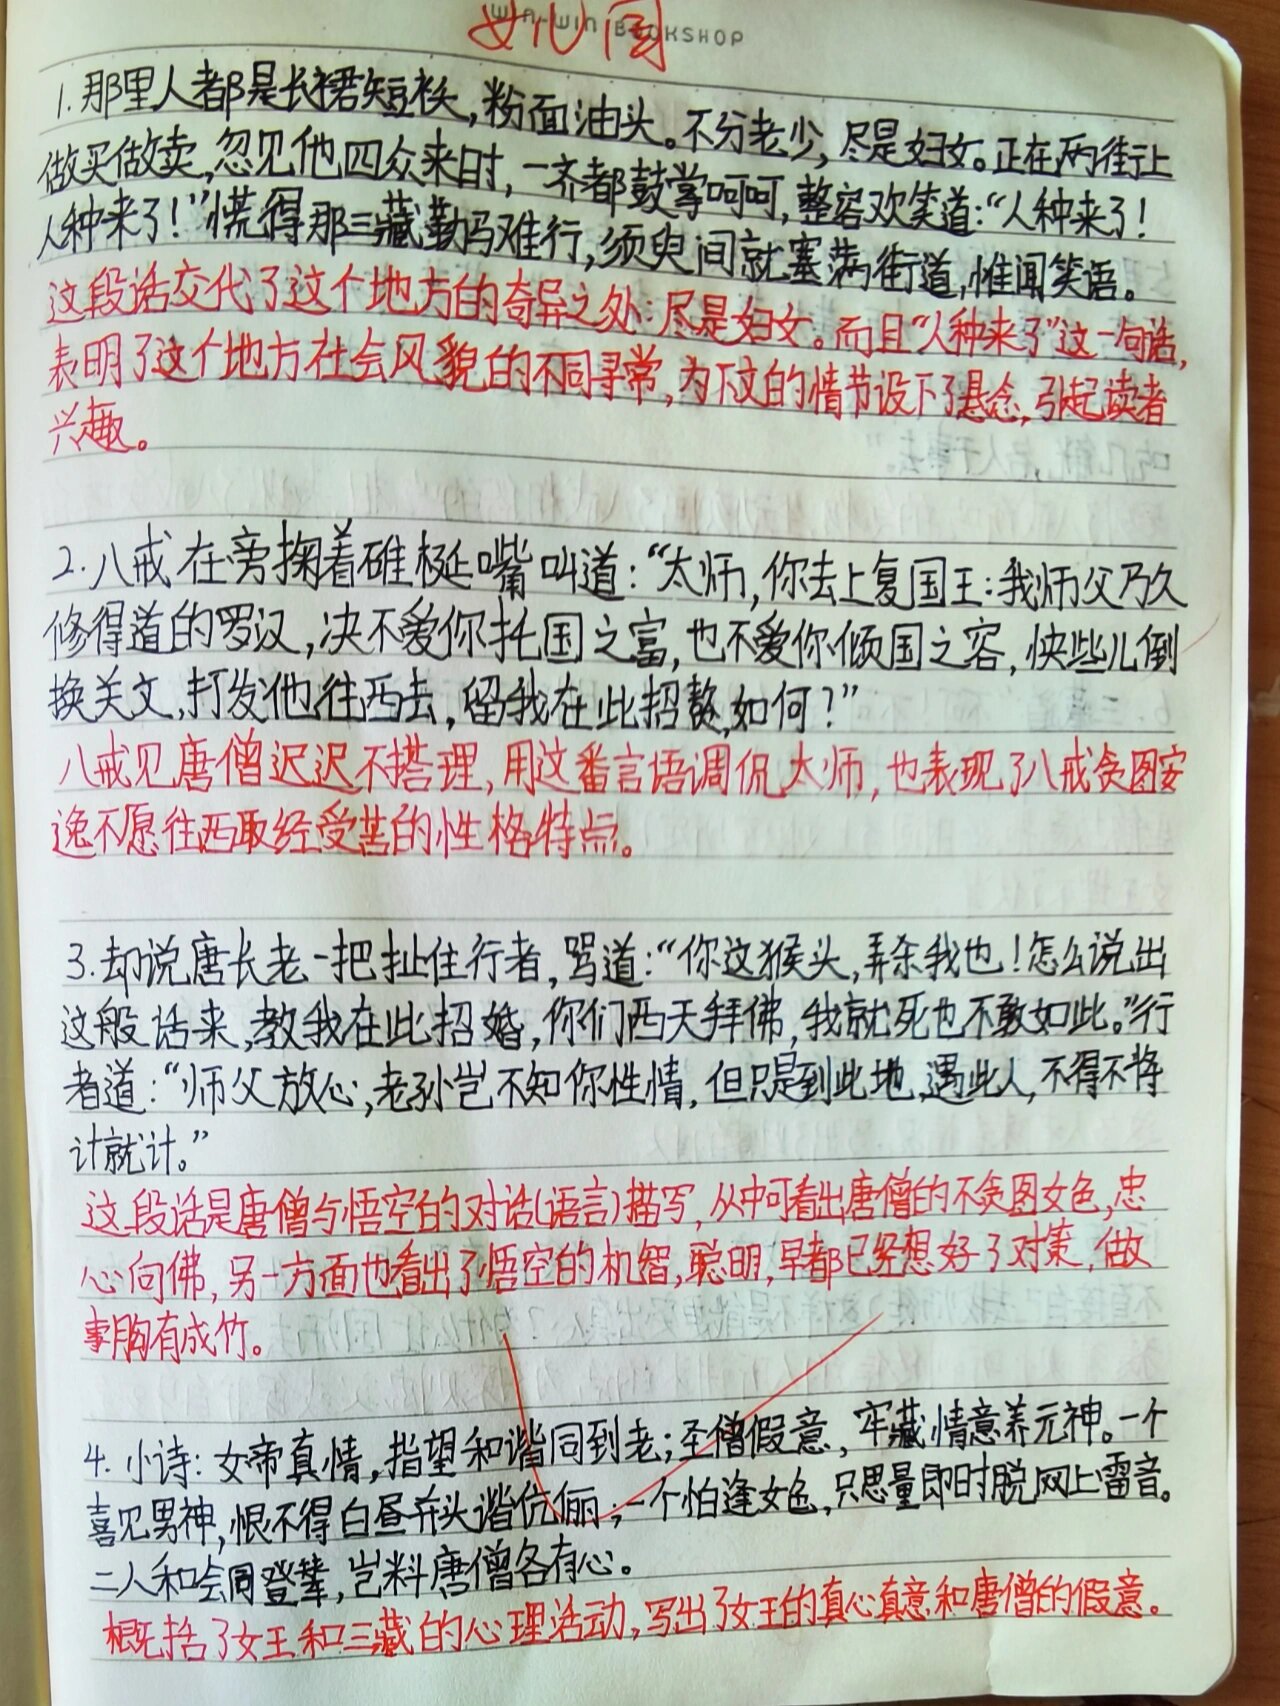 女儿国
WIN BOOKSHOP
1. 那里人都是长裙短袄，粉面油头。不分老少，尽是妇女。正在两街上
做买做卖，忽见他四众来时，一齐都鼓掌呵呵，整容欢笑道：“人种来了！
人种来了！”慌得那三藏勒马难行，须臾间就塞满街道，惟闻笑语。
这段话交代了这个地方的奇异之处：尽是妇女。而且“人种来了”这一句话，
表明了这个地方社会风貌的不同寻常，为下文的情节设下了悬念，引起读者
兴趣。
2. 八戒在旁掬着碓梃嘴叫道：“太师，你去上复国王：我师父乃久
修得道的罗汉，决不爱你托国之富，也不爱你倾国之容，快些儿倒
换关文，打发他往西去，留我在此招赘，如何？”
八戒见唐僧迟迟不搭理，用这番言语调侃太师，也表现了八戒贪图安
逸不愿往西取经受苦的性格特点。
3. 却说唐长老一把扯住行者，骂道：“你这猴头，弄杀我也！怎么说出
这般话来，教我在此招婚，你们西天拜佛，我就死也不敢如此。”行
者道：“师父放心，老孙岂不知你性情，但只是到此地，遇此人，不得不将
计就计。”
这段话是唐僧与悟空的对话（语言）描写，从中可看出唐僧的不贪图女色，忠
心向佛，另一方面也看出了悟空的机智，聪明，早都已经想好了对策，做
事胸有成竹。
4. 小诗：女帝真情，指望和谐同到老；圣僧假意，牢藏情意养元神。一个
喜见男神，恨不得白昼并头谐伉俪；一个怕逢女色，只思量即时脱网上雷音。
二人和会同登辇，岂料唐僧各有心。
概括了女王和三藏的心理活动，写出了女王的真心真意和唐僧的假意。